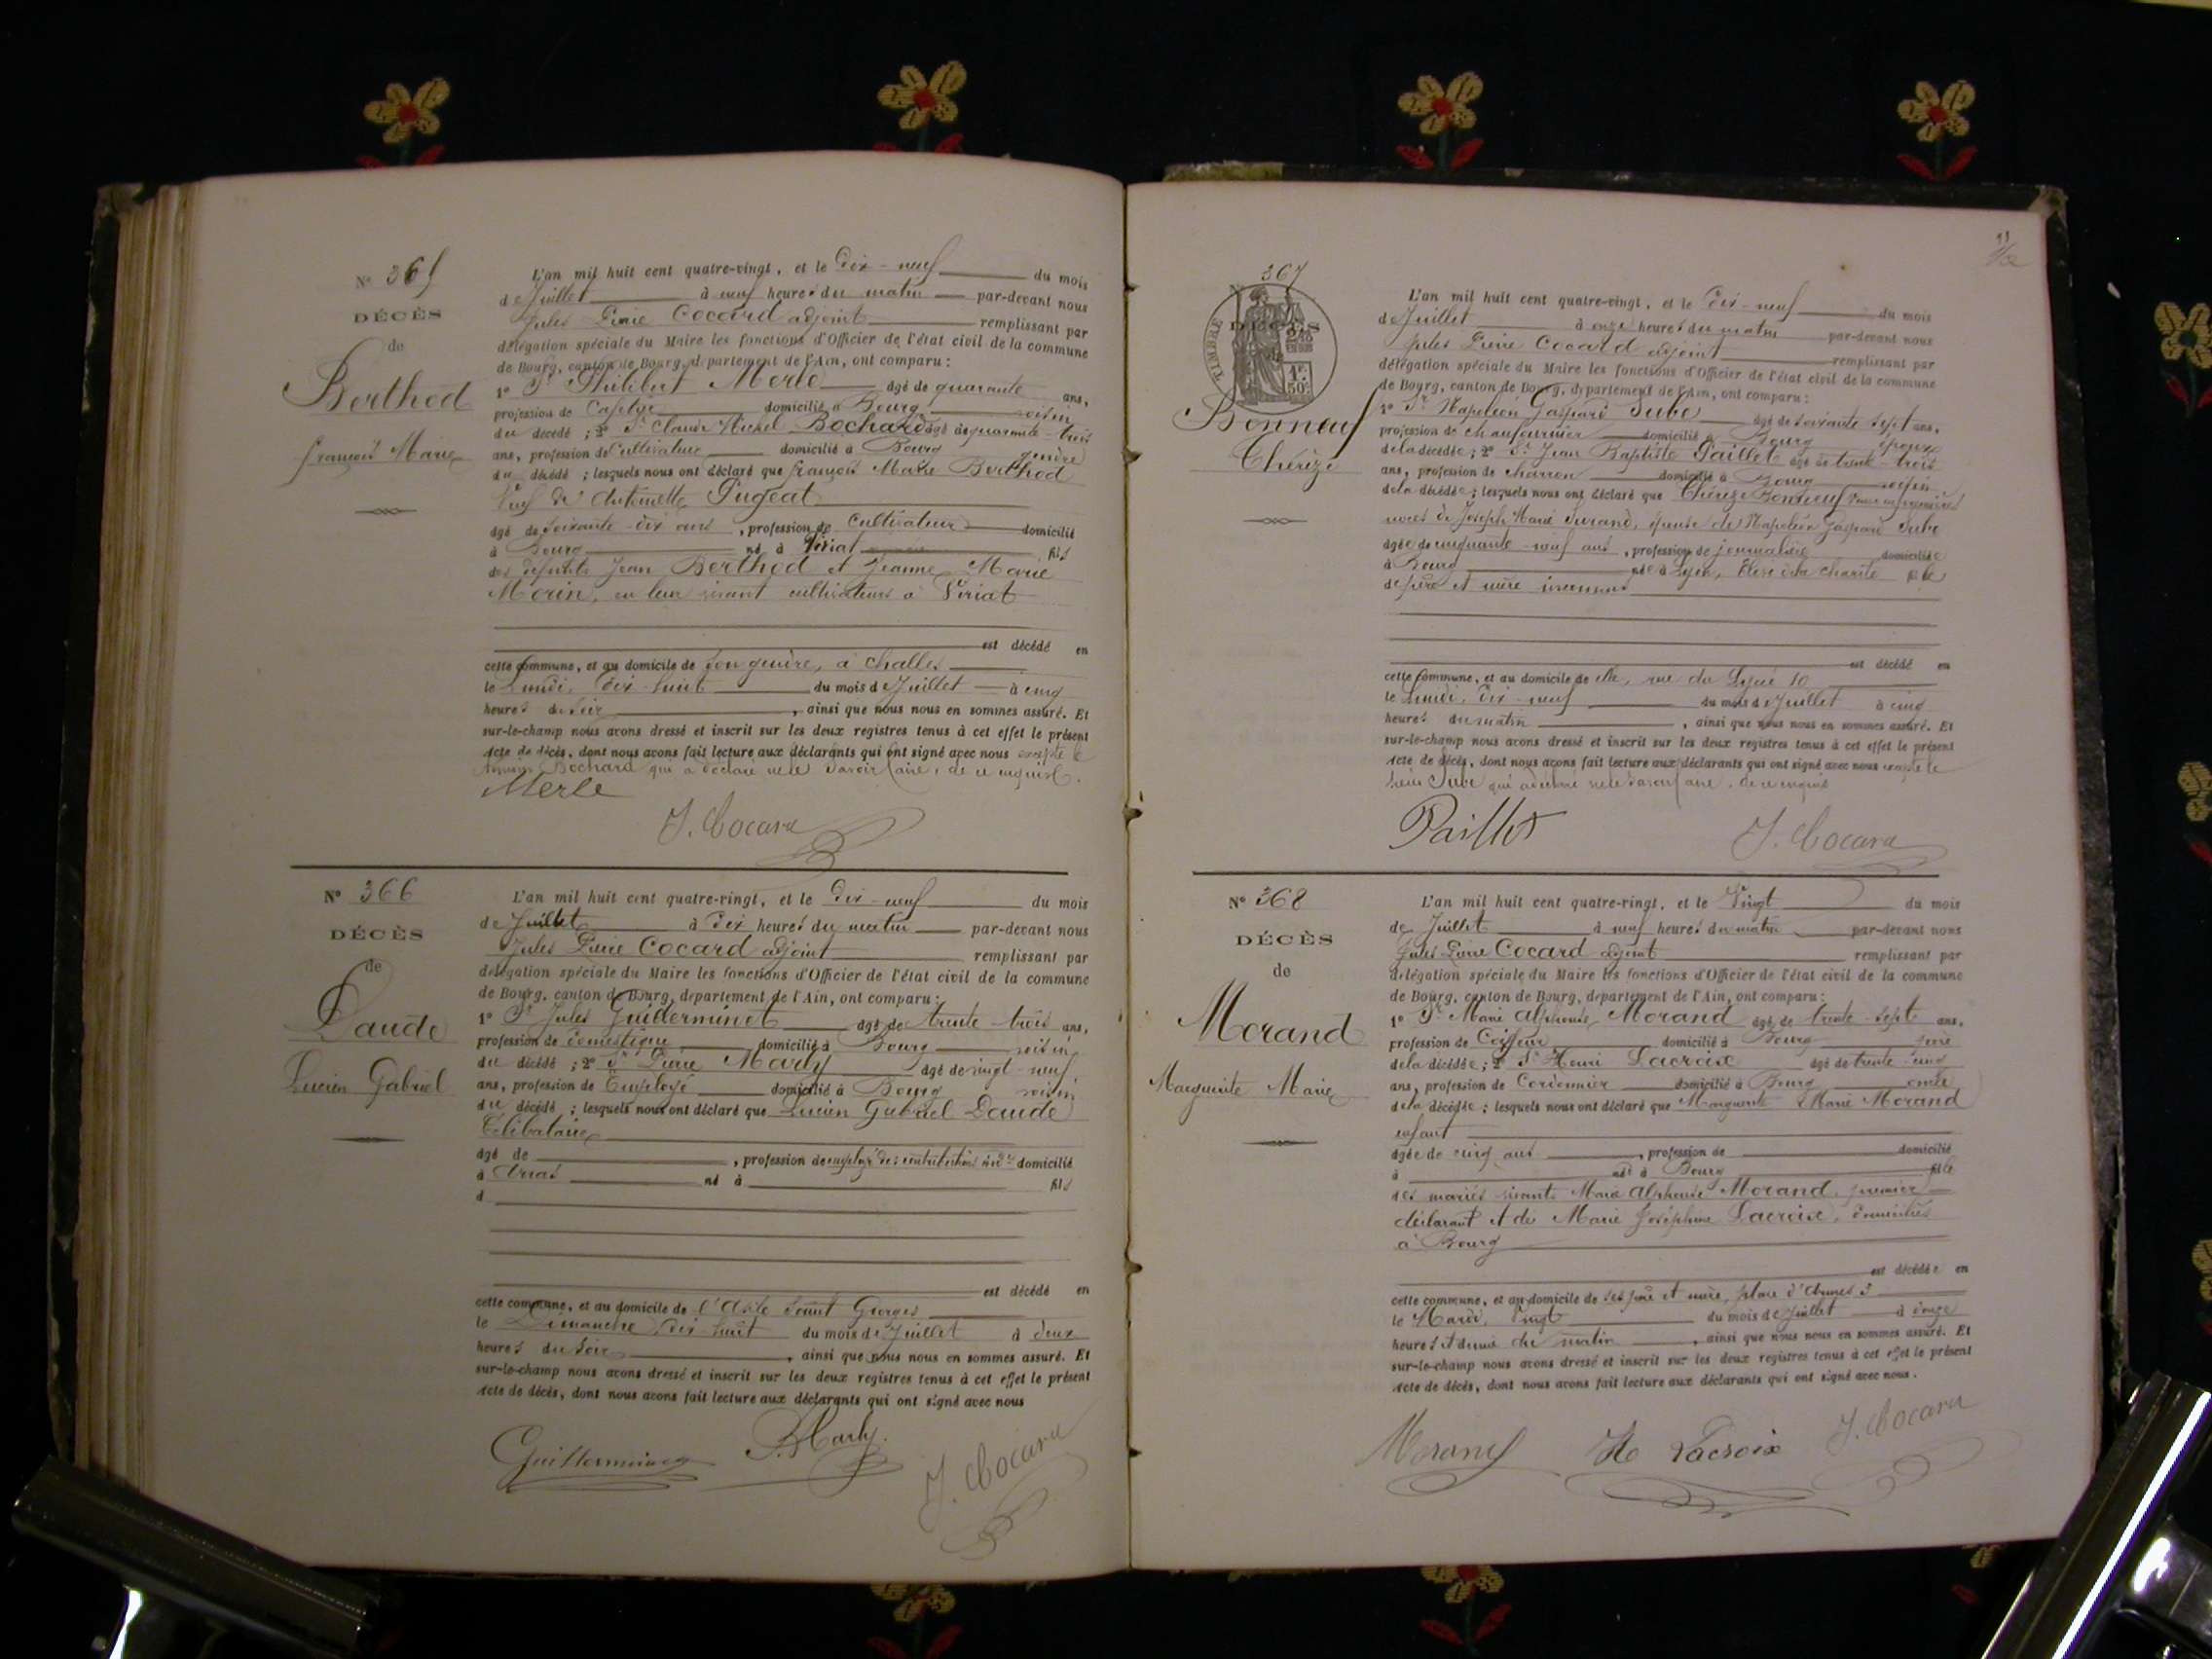 N° 365
DÉCÈS
de
Berthod
François Marie
L'an mil huit cent quatre-vingt, et le Dix-neuf du mois
de Juillet à neuf heures du matin par-devant nous
Jules Pierre Cocard adjoint remplissant par
délégation spéciale du Maire les fonctions d'Officier de l'état civil de la commune
de Bourg, canton de Bourg, département de l'Ain, ont comparu :
1° Sr Philibert Merle âgé de quarante ans,
profession de Cafetier domicilié à Bourg voisin
du décédé ; 2° Sr Claude Michel Bochard âgé de quarante-trois
ans, profession de Cultivateur domicilié à Bourg gendre
du décédé ; lesquels nous ont déclaré que François Marie Berthod
Veuf de Antoinette Pugeat
âgé de soixante-dix ans, profession de Cultivateur domicilié
à Bourg né à Viriat fils
des défunts Jean Berthod et Jeanne Marie
Morin, en leur vivant cultivateurs à Viriat
est décédé en
cette commune, et au domicile de son gendre, à Challes
le Lundi, dix-huit du mois de Juillet à cinq
heures du soir, ainsi que nous nous en sommes assuré. Et
sur-le-champ nous avons dressé et inscrit sur les deux registres tenus à cet effet le présent
acte de décès, dont nous avons fait lecture aux déclarants qui ont signé avec nous excepté le
Bochard qui a déclaré ne le savoir faire, de ce enquis.
Merle
J. Cocard
N° 366
DÉCÈS
de
Daude
Lucien Gabriel
L'an mil huit cent quatre-vingt, et le Dix-neuf du mois
de Juillet à Dix heures du matin par-devant nous
Jules Pierre Cocard adjoint remplissant par
délégation spéciale du Maire les fonctions d'Officier de l'état civil de la commune
de Bourg, canton de Bourg, département de l'Ain, ont comparu :
1° Sr Jules Guilerminet âgé de trente-trois ans,
profession de domestique domicilié à Bourg voisin
du décédé ; 2° Sr Pierre Marly âgé de vingt-neuf
ans, profession de Employé domicilié à Bourg voisin
du décédé ; lesquels nous ont déclaré que Lucien Gabriel Daude
Célibataire
âgé de , profession de employé des contributions indtes domicilié
à né à fils
d
est décédé en
cette commune, et au domicile de l'Asile Saint Georges
le Dimanche, dix huit du mois de Juillet à deux
heures du soir, ainsi que nous nous en sommes assuré. Et
sur-le-champ nous avons dressé et inscrit sur les deux registres tenus à cet effet le présent
acte de décès, dont nous avons fait lecture aux déclarants qui ont signé avec nous
Guillerminet
P. Marly.
J. Cocard
367
N°
DÉCÈS
TIMBRE
1F.
50c
Bonneuf
Thérèze
L'an mil huit cent quatre-vingt, et le Dix-neuf du mois
de Juillet à onze heures du matin par-devant nous
Jules Pierre Cocard adjoint remplissant par
délégation spéciale du Maire les fonctions d'Officier de l'état civil de la commune
de Bourg, canton de Bourg, département de l'Ain, ont comparu :
1° Sr Napoléon Gaspard Jube âgé de soixante sept ans,
profession de chaufournier domicilié à Bourg époux
de la décédée ; 2° Sr Jean Baptiste Paillet âgé de trente-trois
ans, profession de charron domicilié à Bourg voisin
de la décédée ; lesquels nous ont déclaré que Thérèze Bonneuf Veuve en premières
noces de Joseph Marie Durand, épouse de Napoléon Gaspard Jube
âgée de cinquante-neuf ans, profession de journalière domiciliée
à Bourg née à Lyon, Elève de la Charité fille
de père et mère inconnus
est décédé en
cette commune, et au domicile de elle, rue du Lycée 10
le Lundi, dix-neuf du mois de Juillet à cinq
heures du matin, ainsi que nous nous en sommes assuré. Et
sur-le-champ nous avons dressé et inscrit sur les deux registres tenus à cet effet le présent
acte de décès, dont nous avons fait lecture aux déclarants qui ont signé avec nous excepté le
sieur Jube qui a déclaré ne le savoir faire, de ce enquis
Paillet
J. Cocard
N° 368
DÉCÈS
de
Morand
Marguerite Marie
L'an mil huit cent quatre-vingt, et le Vingt du mois
de Juillet à neuf heures du matin par-devant nous
Jules Pierre Cocard adjoint remplissant par
délégation spéciale du Maire les fonctions d'Officier de l'état civil de la commune
de Bourg, canton de Bourg, département de l'Ain, ont comparu :
1° Sr Marie Alphonse Morand âgé de trente-sept ans,
profession de Coiffeur domicilié à Bourg père
de la décédée ; 2° Sr Henri Lacroix âgé de trente-cinq
ans, profession de Cordonnier domicilié à Bourg oncle
de la décédée ; lesquels nous ont déclaré que Marguerite Marie Morand
enfant
âgée de cinq ans, profession de domicilié
à née à Bourg fille
des mariés vivants Marie Alphonse Morand, premier
déclarant et de Marie Joséphine Lacroix, domiciliés
à Bourg
est décédée en
cette commune, et au domicile de ses père et mère, place d'Armes 3
le Mardi, Vingt du mois de Juillet à
heures et demie du matin, ainsi que nous nous en sommes assuré. Et
sur-le-champ nous avons dressé et inscrit sur les deux registres tenus à cet effet le présent
acte de décès, dont nous avons fait lecture aux déclarants qui ont signé avec nous.
Morand
H Lacroix
J. Cocard